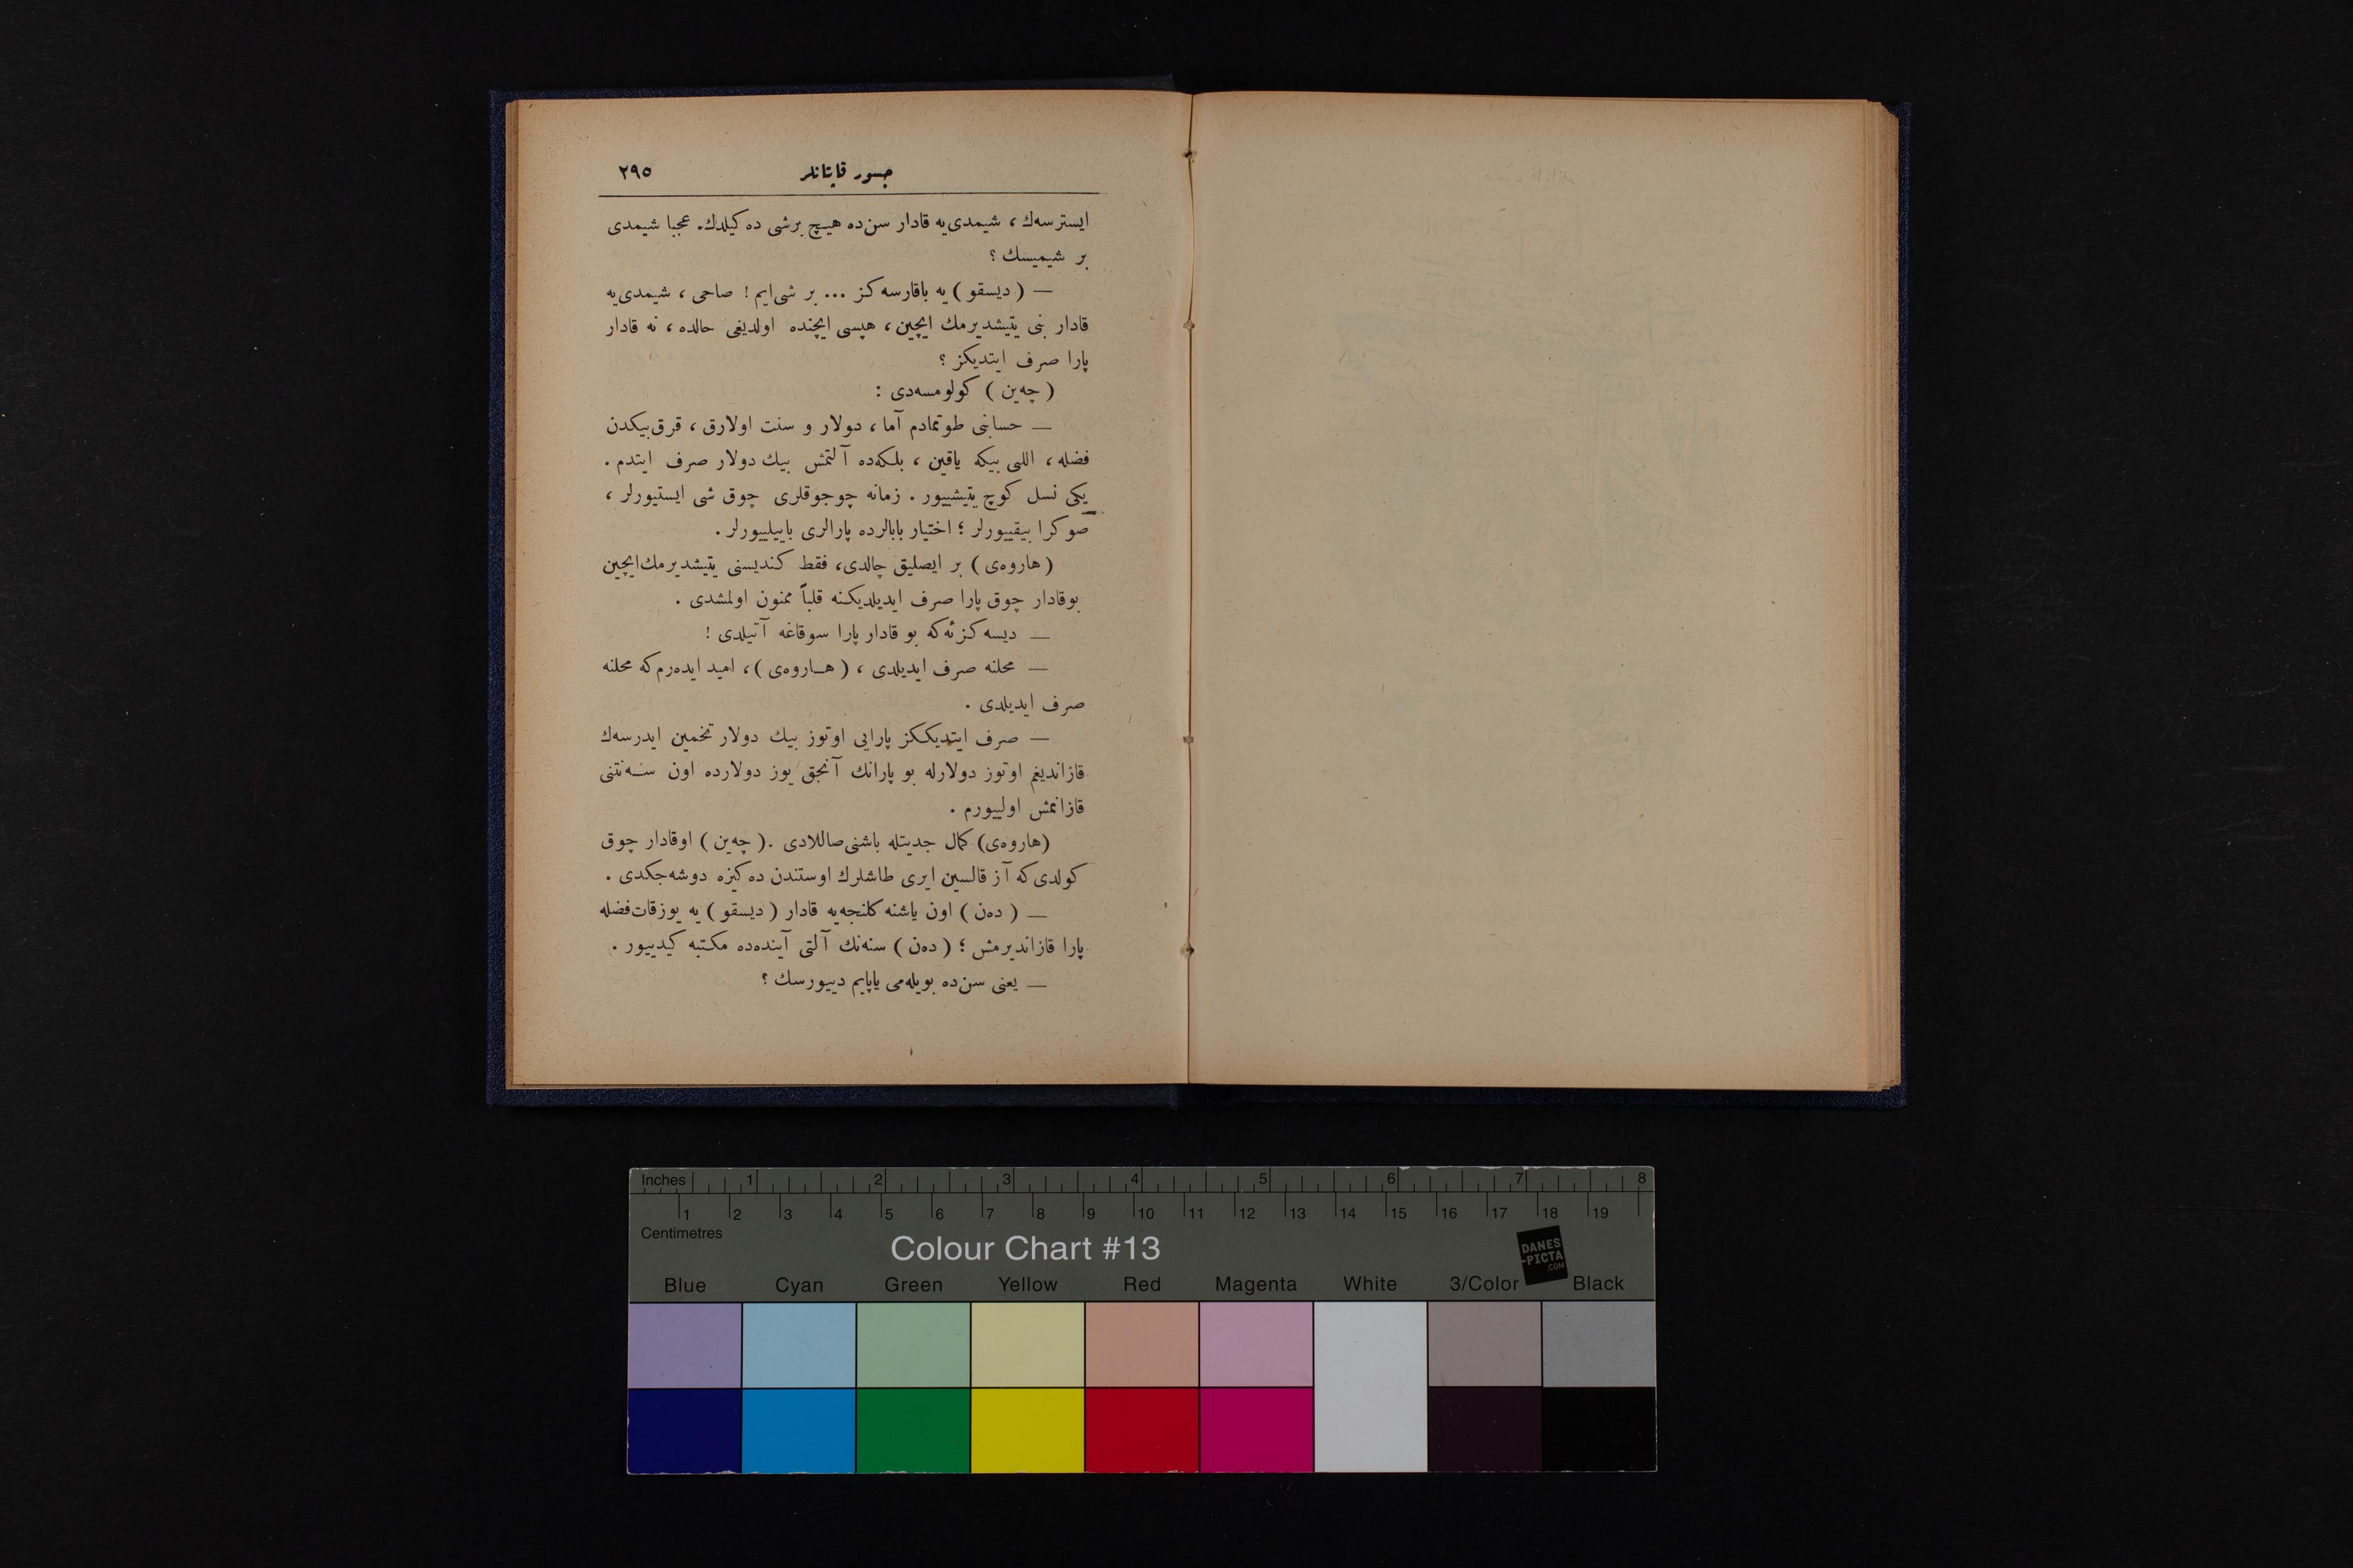 جسور قاپتانلر ٢٩٥
ايسترسه‌ك ، شيمدى‌يه قادار سن‌ده هيچ برشى ده‌كيلدك. عجبا شيمدى
بر شيميسك ؟
— ( ديسقو ) يه باقارسه‌كز ... بر شى‌ايم ! صاحى ، شيمدى‌يه
قادار بنى يتيشديرمك ايچين ، هپسى ايچنده اولديغى حالده ، نه قادار
پارا صرف ايتديكز ؟
( چه‌ين ) كولومسه‌دى :
— حسابنى طوتمادم آما ، دولار و سنت اولارق ، قرق‌بيكدن
فضله ، اللى بيكه ياقين ، بلكه‌ده آلتمش بيك دولار صرف ايتدم .
يكى نسل كوچ يتيشييور . زمانه چوجوقلرى چوق شى ايستيورلر ،
صوكرا بيقييورلر ؛ اختيار بابالرده پارالرى باييلييورلر .
( هاروه‌ى ) بر ايصليق چالدى، فقط كنديسنى يتيشديرمك‌ايچين
بوقادار چوق پارا صرف ايديلديكنه قلباً ممنون اولمشدى .
— ديسه‌كزئه‌كه بو قادار پارا سوقاغه آتيلدى !
— محلنه صرف ايديلدى ، ( هاروه‌ى ) ، اميد ايده‌رم‌كه محلنه
صرف ايديلدى .
— صرف ايتديككز پارايى اوتوز بيك دولار تخمين ايدرسه‌ك
قازانديغم اوتوز دولارله بو پارانك آنجق يوز دولارده اون سه‌نتنى
قازانمش اولييورم .
(هاروه‌ى) كمال جديتله باشنى‌صاللادى . ( چه‌ين ) اوقادار چوق
كولدى‌كه آز قالسين ايرى طاشلرك اوستندن ده‌كيزه دوشه‌جكدى .
— ( ده‌ن ) اون ياشنه كلنجه‌يه قادار ( ديسقو ) يه يوزقات‌فضله
پارا قازانديرمش ؛ ( ده‌ن ) سنه‌نك آلتى آينده‌ده مكتبه كيدييور .
— يعنى سن‌ده بويله‌مى ياپايم دييورسك ؟
Inches 1 2 3 4 5 6 7 8
1 2 3 4 5 6 7 8 9 10 11 12 13 14 15 16 17 18 19
Centimetres
Colour Chart #13
DANES
-PICTA
.COM
Blue Cyan Green Yellow Red Magenta White 3/Color Black